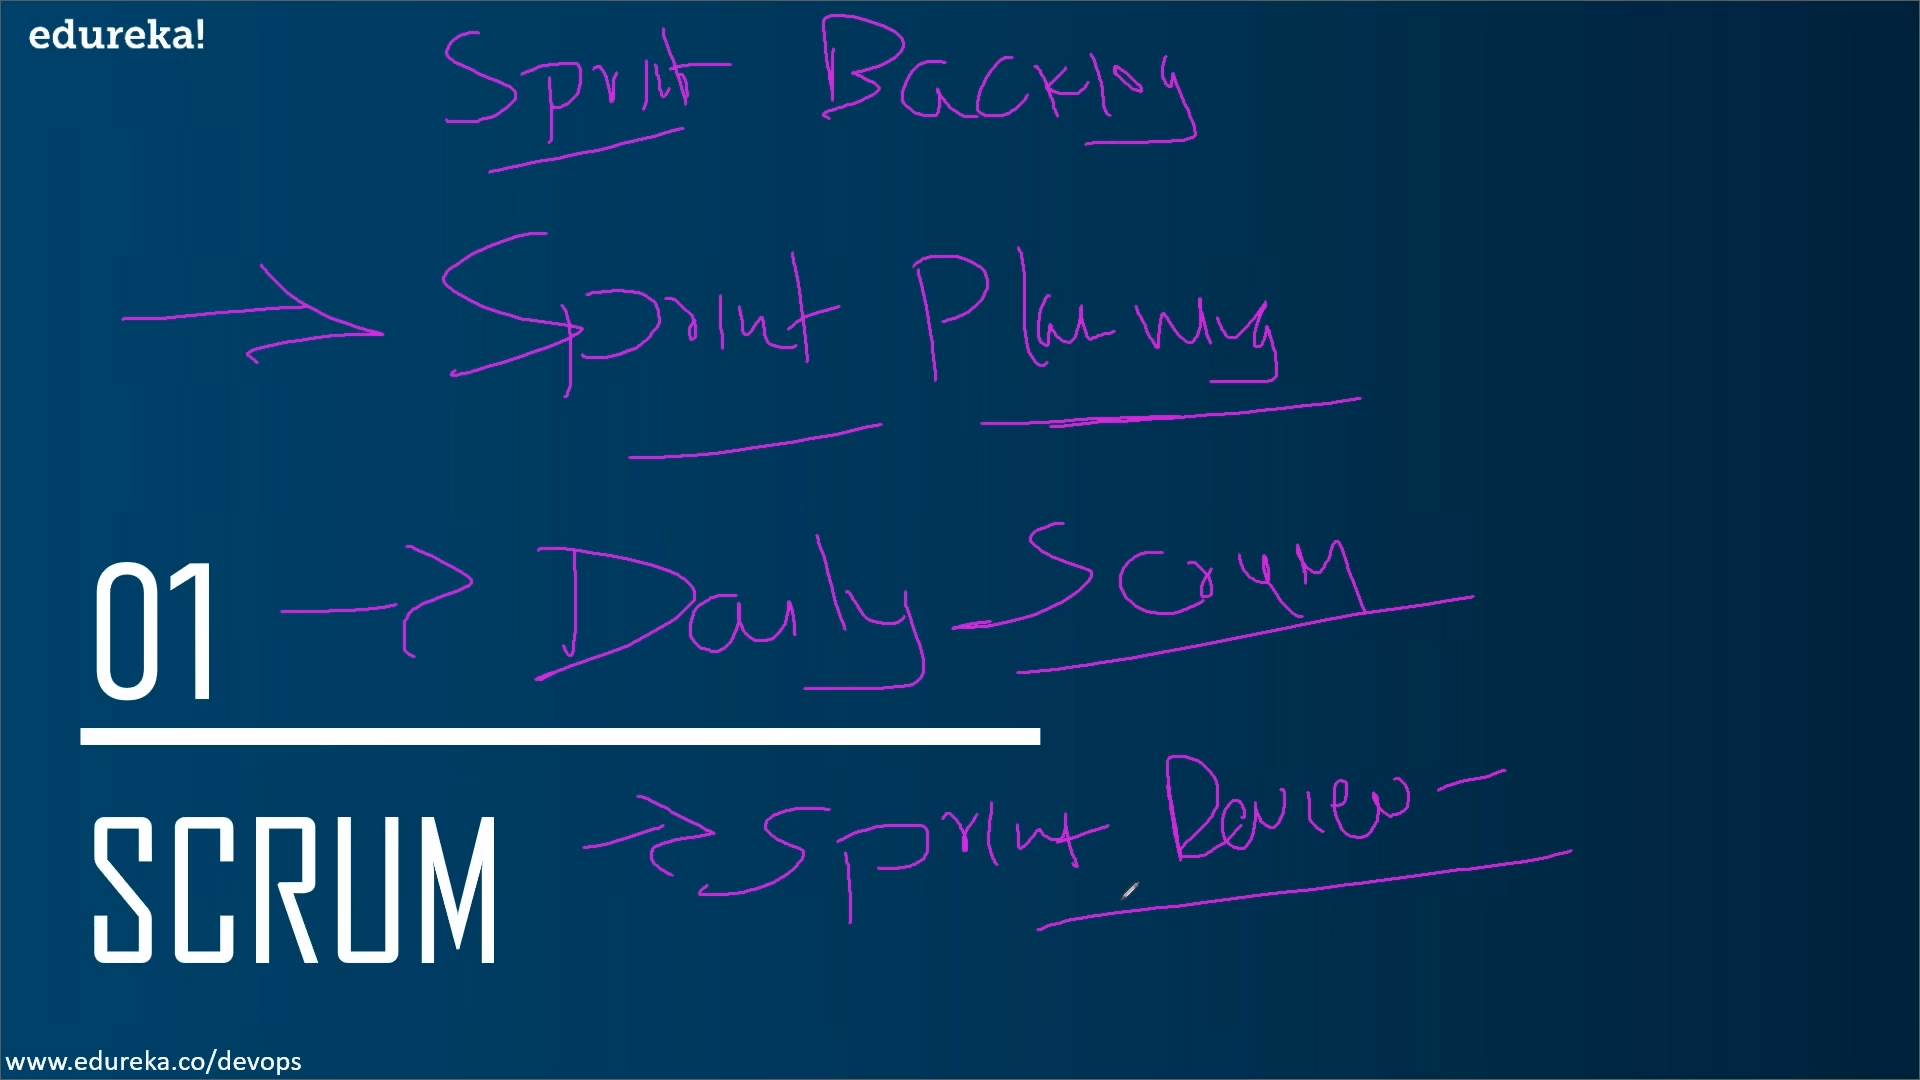 edureka!
Sprint Backlog
Sprint Planning
01
Daily Scrum
SCRUM
Sprint Review
www.edureka.co/devops